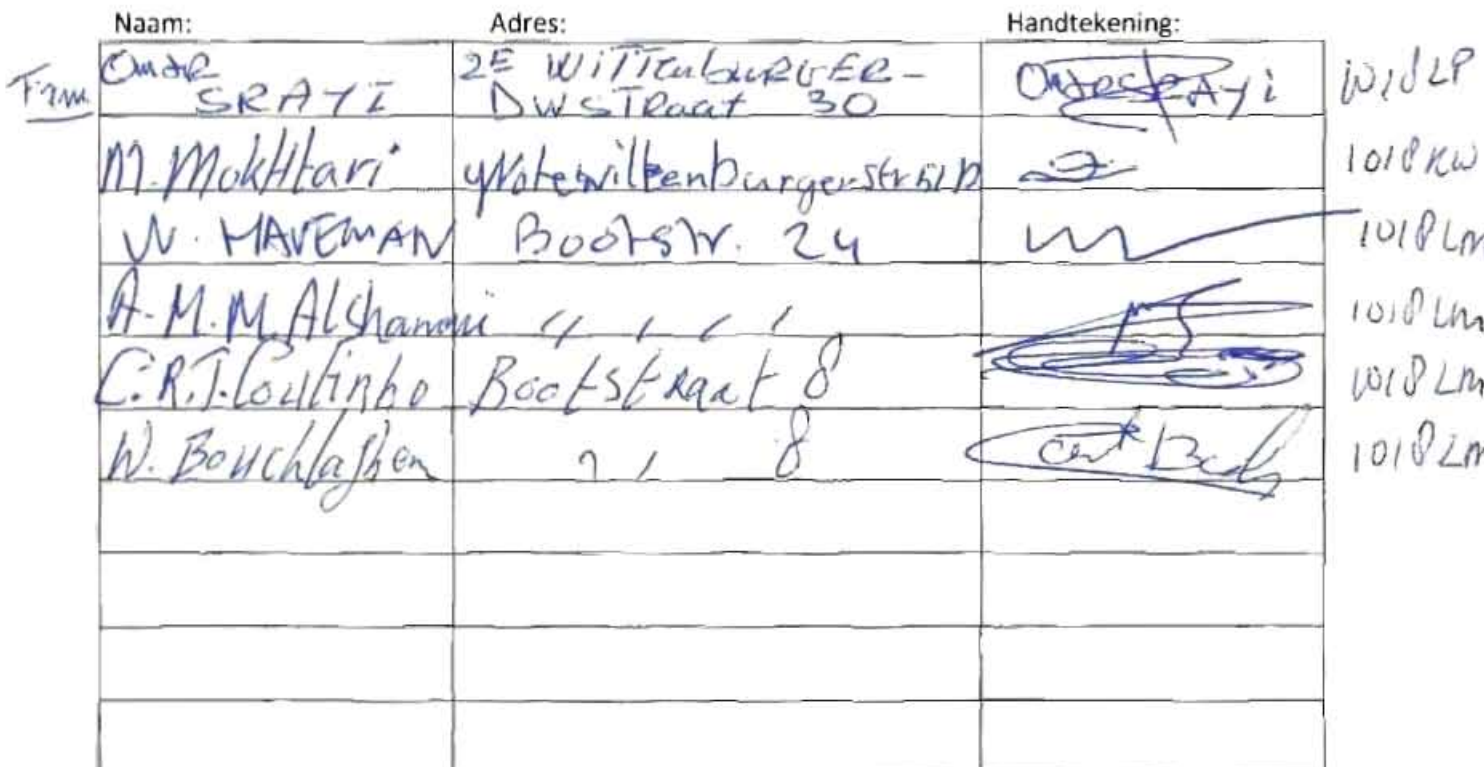 Naam: Adres: Handtekening:
Omar 2E WiTTenbuRGER-
SRAYI DWSTRaat 30 OmaRSRAYi 1018 LP
M. MokHtari 1018 KW
W. HAVEMAN Bootstr. 24 1018 LM
A.M.M. Alshammi 〃 〃 〃 〃 1018 LM
C.R.J. Coutinho Bootstraat 8 1018 LM
W. Bouchlaghen 〃 〃 8 1018 LM